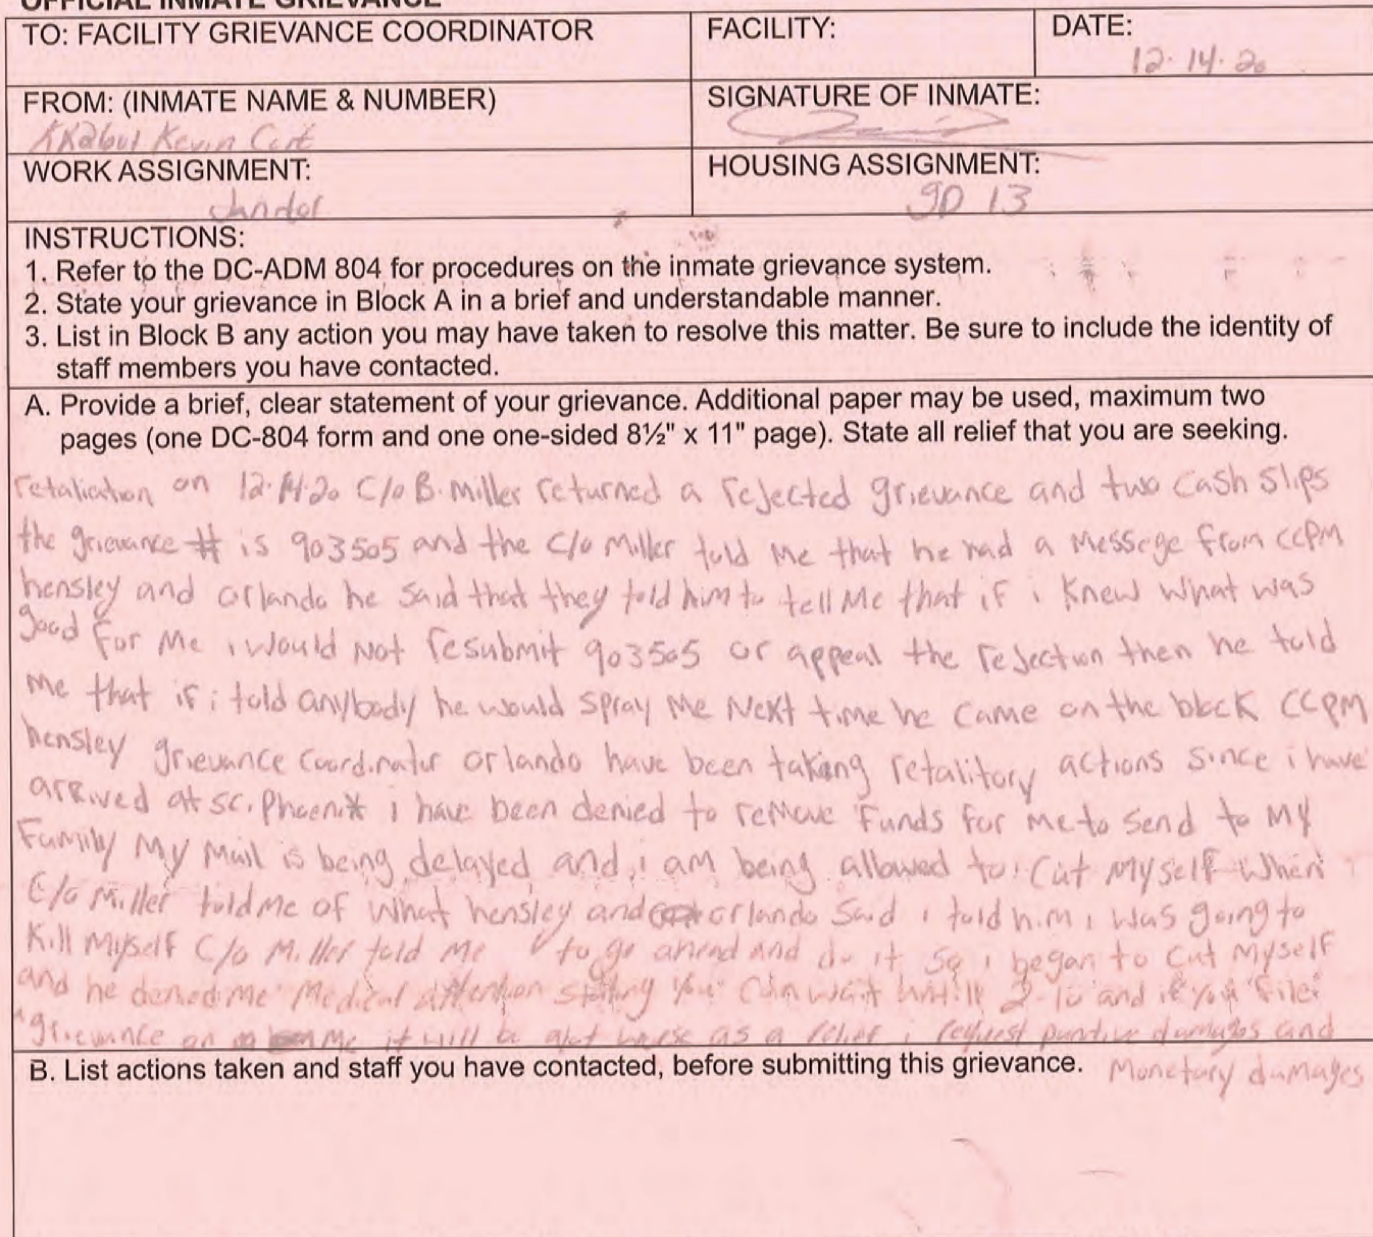 OFFICIAL INMATE GRIEVANCE
TO: FACILITY GRIEVANCE COORDINATOR
FACILITY:
DATE:
12·14·20
FROM: (INMATE NAME & NUMBER)
Kevin
SIGNATURE OF INMATE:
WORK ASSIGNMENT:
HOUSING ASSIGNMENT:
gD 13
INSTRUCTIONS:
1. Refer to the DC-ADM 804 for procedures on the inmate grievance system.
2. State your grievance in Block A in a brief and understandable manner.
3. List in Block B any action you may have taken to resolve this matter. Be sure to include the identity of
staff members you have contacted.
A. Provide a brief, clear statement of your grievance. Additional paper may be used, maximum two
pages (one DC-804 form and one one-sided 8½" x 11" page). State all relief that you are seeking.
retaliation on 12·14·20 C/o B. Miller returned a rejected grievance and two cash slips
the grievance # is 903505 and the C/o Miller told me that he had a messege from CCPM
hensley and orlando he said that they told him to tell me that if i knew what was
good for me i would not resubmit 903505 or appeal the rejection then he told
me that if i told anybody he would spray me next time he came on the block CCPM
hensley grievance coordinator orlando have been taking retalitory actions since i have
arrived at sci phoenix i have been denied to remove funds for me to send to my
family my mail is being delayed and i am being allowed to cut myself when
C/o Miller told me of what hensley and orlando said i told him i was going to
kill myself C/o Miller told me to go ahead and do it so i began to cut myself
and he denied me medical attention stating you can wait until 2-10 and if you file
grievance on me it will be alot worse as a relief i request punitive damages and
B. List actions taken and staff you have contacted, before submitting this grievance.
monetary damages